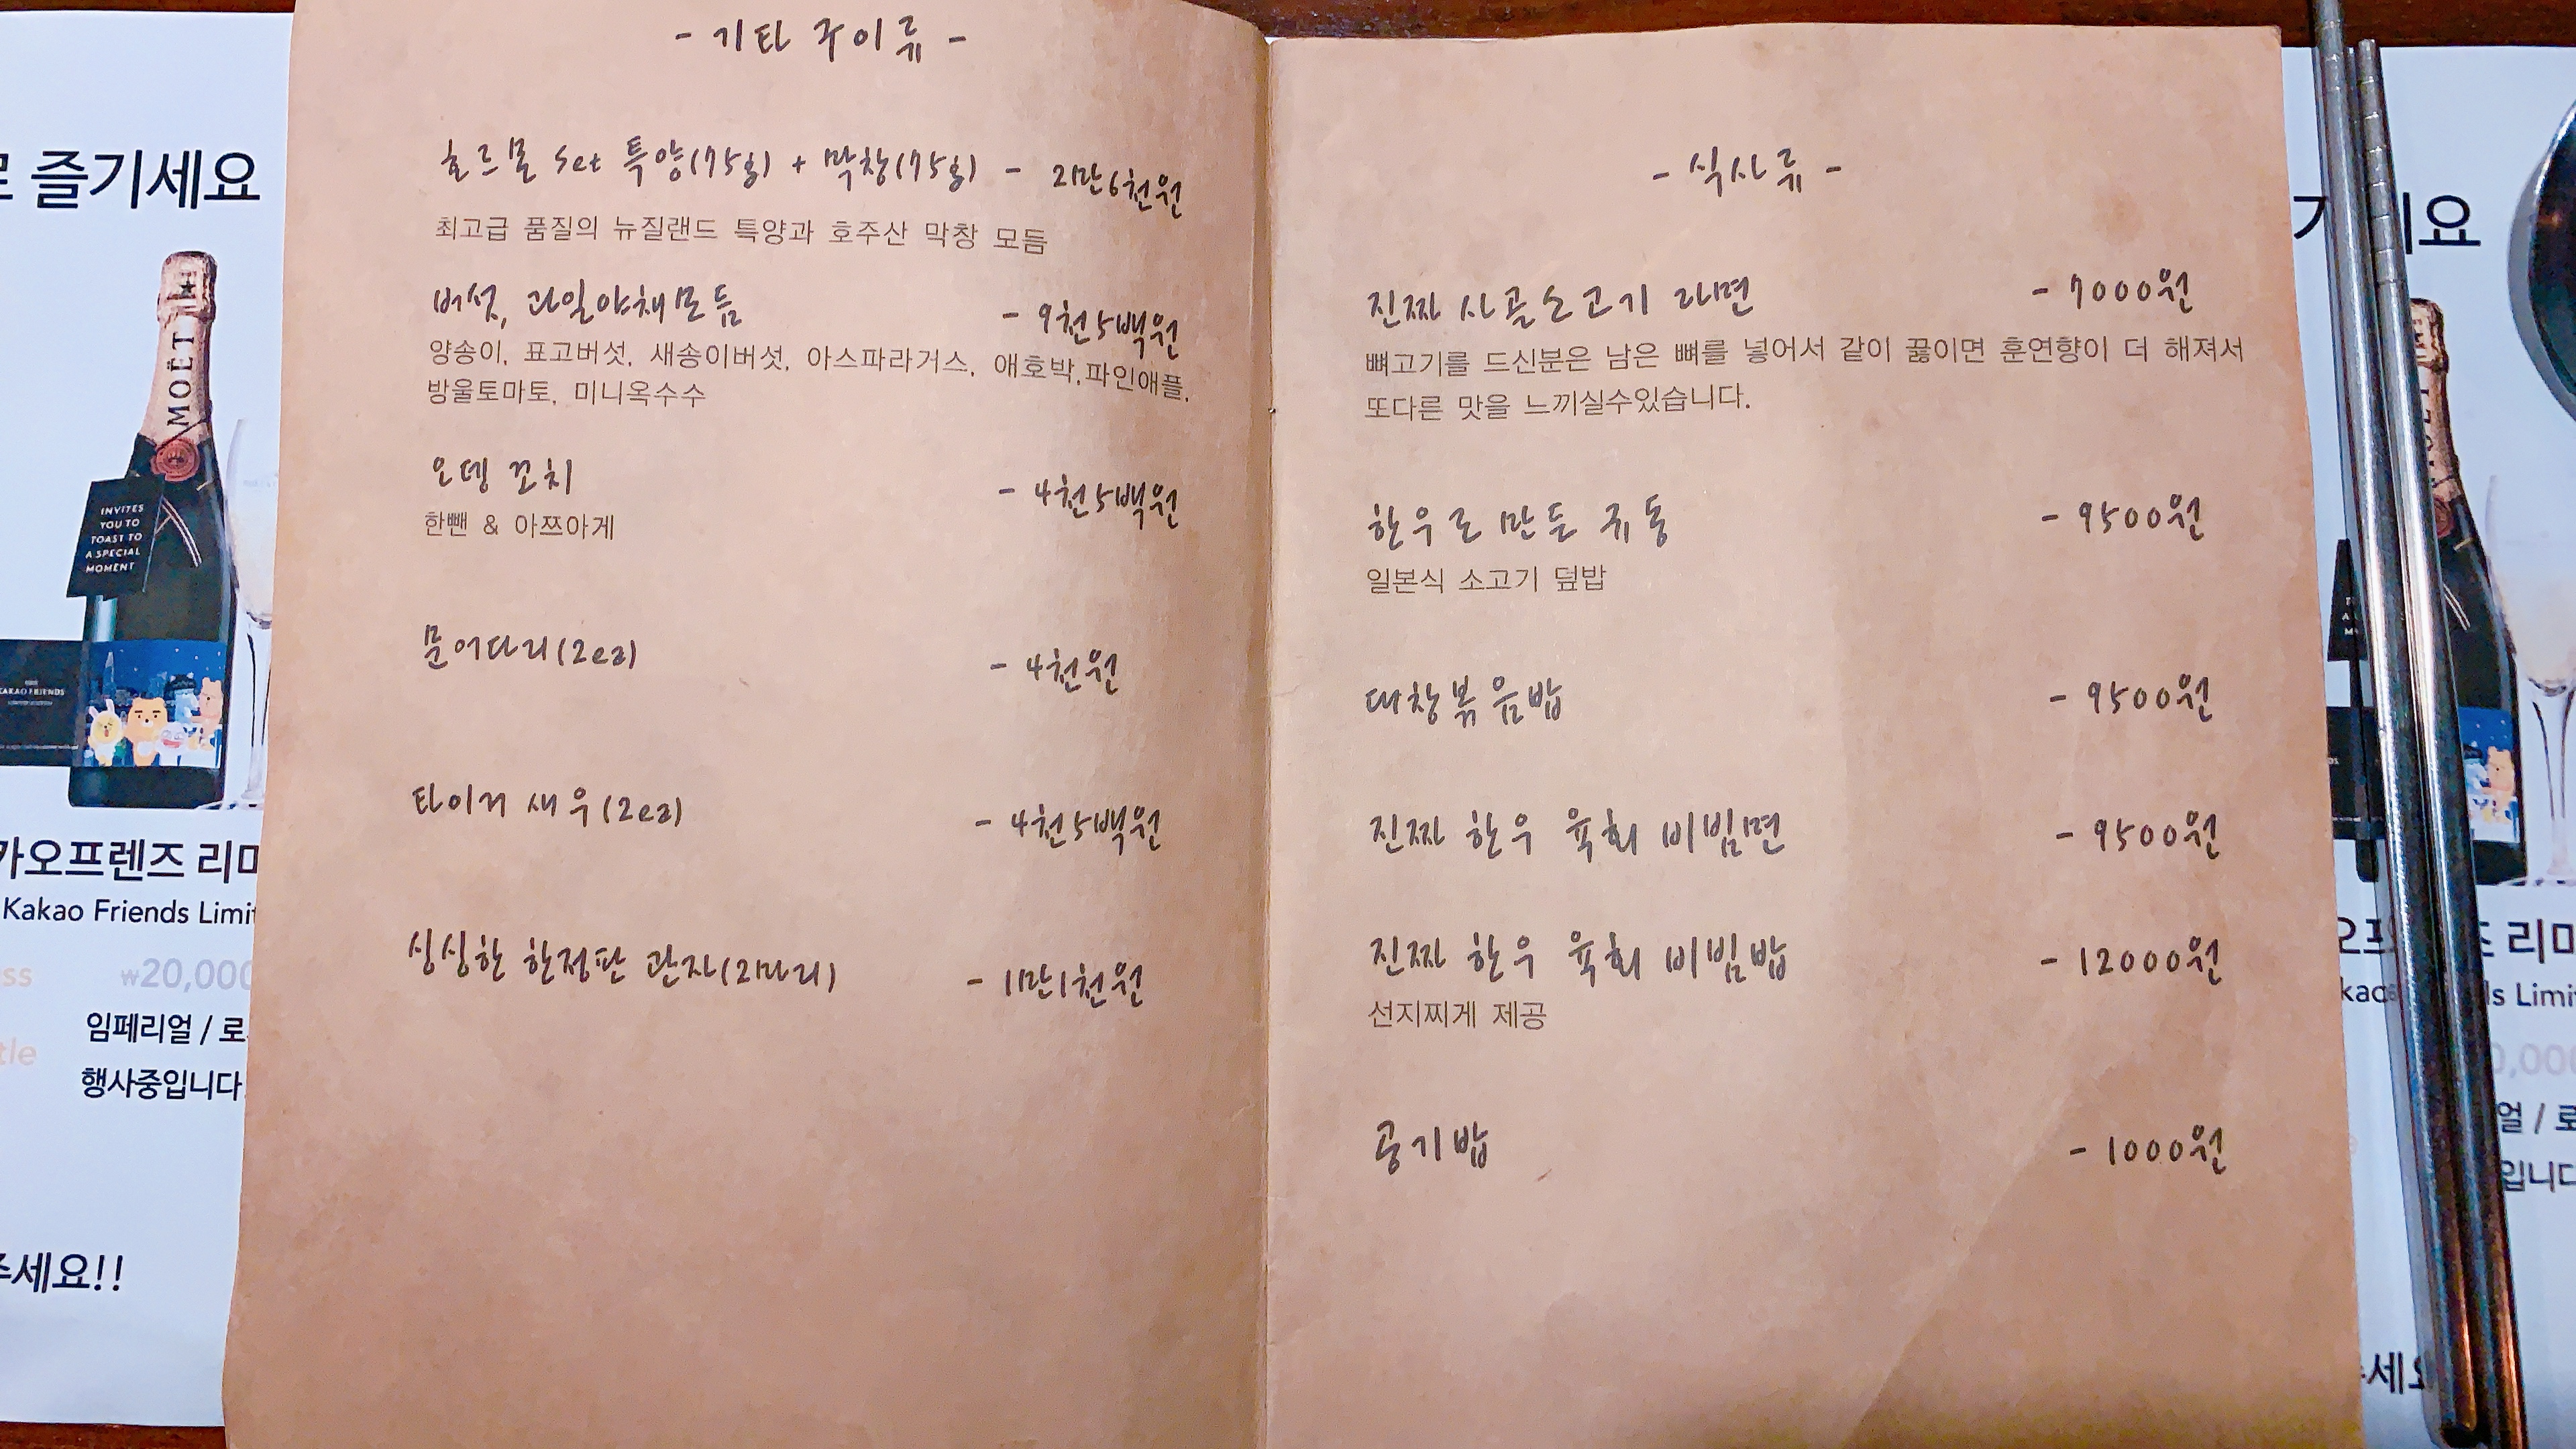 - 기타 구이류 -
호르몬 set 특양(75g) + 막창(75g) - 2만6천원
최고급 품질의 뉴질랜드 특양과 호주산 막창 모듬
버섯, 과일야채모듬 - 9천5백원
양송이, 표고버섯, 새송이버섯, 아스파라거스, 애호박,파인애플,
방울토마토, 미니옥수수
오뎅 꼬치 - 4천5백원
한뺀 & 아쯔아게
문어다리(2ea) - 4천원
타이거 새우(2ea) - 4천5백원
싱싱한 한정판 관자(2마리) - 1만1천원
- 식사류 -
진짜 사골소고기 라면 - 7000원
뼈고기를 드신분은 남은 뼈를 넣어서 같이 끓이면 훈연향이 더 해져서
또다른 맛을 느끼실수있습니다.
한우로 만든 규동 - 9500원
일본식 소고기 덮밥
대창볶음밥 - 9500원
진짜 한우 육회 비빔면 - 9500원
진짜 한우 육회 비빔밥 - 12000원
선지찌게 제공
공기밥 - 1000원
로 즐기세요
MOËT
INVITES
YOU TO
TOAST TO
A SPECIAL
MOMENT
KAKAO FRIENDS
카오프렌즈 리미
Kakao Friends Limit
₩20,000
임페리얼 / 로
행사중입니다
주세요!!
요
리미
ds Limi
얼 / 로
입니다
세요